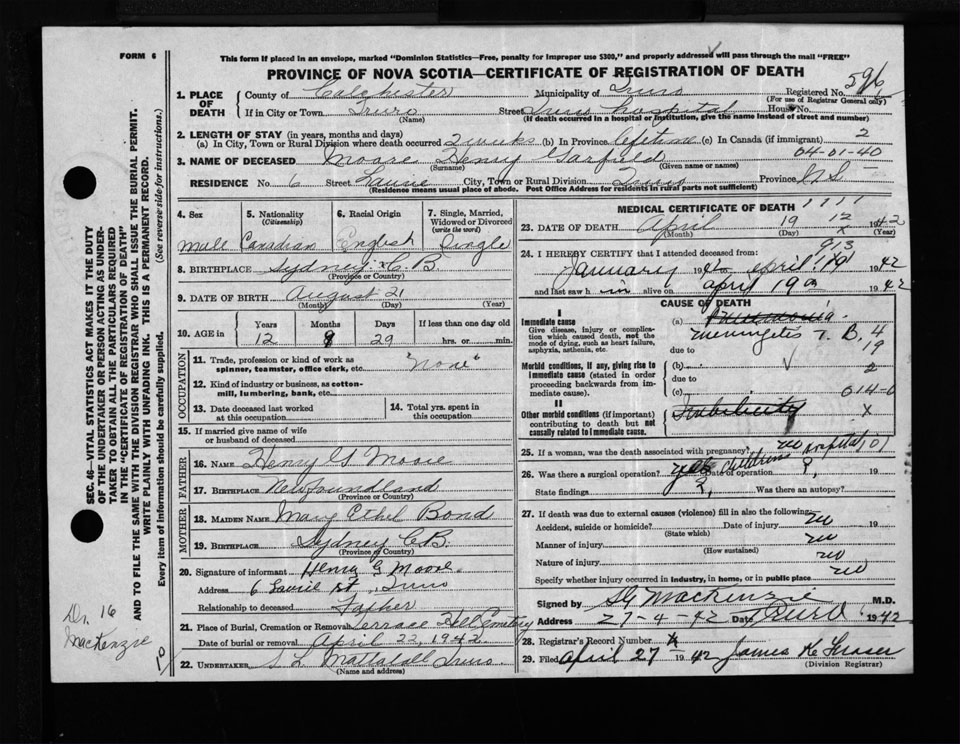 FORM 6
This form if placed in an envelope, marked "Dominion Statistics—Free, penalty for improper use $300," and properly addressed will pass through the mail "FREE"
PROVINCE OF NOVA SCOTIA—CERTIFICATE OF REGISTRATION OF DEATH
596
1. PLACE OF DEATH
County of Colchester Municipality of Truro Registered No.
(For use of Registrar General only)
If in City or Town Truro Street Truro Hospital House No.
(Name) (If death occurred in a hospital or institution, give the name instead of street and number)
2. LENGTH OF STAY (in years, months and days)
(a) In City, Town or Rural Division where death occurred 2 weeks (b) In Province Lifetime (c) In Canada (if immigrant) 2
04-01-40
3. NAME OF DECEASED Moore Henry Garfield
(Surname) (Given name or names)
RESIDENCE No. 6 Street Laurie City, Town or Rural Division Truro Province N.S.
(Residence means usual place of abode. Post Office Address for residents in rural parts not sufficient)
4. Sex 5. Nationality (Citizenship) 6. Racial Origin 7. Single, Married, Widowed or Divorced (write the word)
Male Canadian English Single
8. BIRTHPLACE Sydney C.B.
(Province or Country)
9. DATE OF BIRTH August 21
(Month) (Day) (Year)
10. AGE in Years Months Days If less than one day old
12 29 hrs. or min.
OCCUPATION
11. Trade, profession or kind of work as spinner, teamster, office clerk, etc. "None"
12. Kind of industry or business, as cotton-mill, lumbering, bank, etc.
13. Date deceased last worked at this occupation
14. Total yrs. spent in this occupation
15. If married give name of wife or husband of deceased
FATHER
16. NAME Henry G Moore
17. BIRTHPLACE Newfoundland
(Province or Country)
MOTHER
18. MAIDEN NAME Mary Ethel Bond
19. BIRTHPLACE Sydney C.B.
(Province or Country)
20. Signature of informant Henry G Moore.
Address 6 Laurie St, Truro
Relationship to deceased Father
21. Place of Burial, Cremation or Removal Terrace Hill Cemetery
Date of burial or removal April 22, 1942
22. UNDERTAKER Truro
(Name and address)
MEDICAL CERTIFICATE OF DEATH
23. DATE OF DEATH April 19 1942
(Month) (Day) (Year)
24. I HEREBY CERTIFY that I attended deceased from:
January 19 to April 19 1942
and last saw h im alive on April 19 1942
CAUSE OF DEATH
I
Immediate cause
Give disease, injury or complication which caused death, not the mode of dying, such as heart failure, asphyxia, asthenia, etc.
(a) Meningitis T.B.
due to
Morbid conditions, if any, giving rise to immediate cause (stated in order proceeding backwards from immediate cause).
(b)
due to
(c)
II
Other morbid conditions (if important) contributing to death but not causally related to immediate cause.
25. If a woman, was the death associated with pregnancy? no
26. Was there a surgical operation? yes Childrens Hospital Date of operation ? 19
State findings ? Was there an autopsy?
27. If death was due to external causes (violence) fill in also the following:
Accident, suicide or homicide? no Date of injury 19
(State which)
Manner of injury no
(How sustained)
Nature of injury no
Specify whether injury occurred in industry, in home, or in public place no
Signed by S G MacKenzie M.D.
Address 27-4-42 Date Truro 1942
28. Registrar's Record Number
29. Filed April 27 1942 James K Fraser
(Division Registrar)
SEC. 46—VITAL STATISTICS ACT MAKES IT THE DUTY
OF THE UNDERTAKER OR PERSON ACTING AS UNDER-
TAKER TO OBTAIN ALL THE PARTICULARS REQUIRED
IN THE "CERTIFICATE OF REGISTRATION OF DEATH"
AND TO FILE THE SAME WITH THE DIVISION REGISTRAR WHO SHALL ISSUE THE BURIAL PERMIT.
WRITE PLAINLY WITH UNFADING INK. THIS IS A PERMANENT RECORD.
Every item of information should be carefully supplied. (See reverse side for instructions.)
Dr. 16
MacKenzie